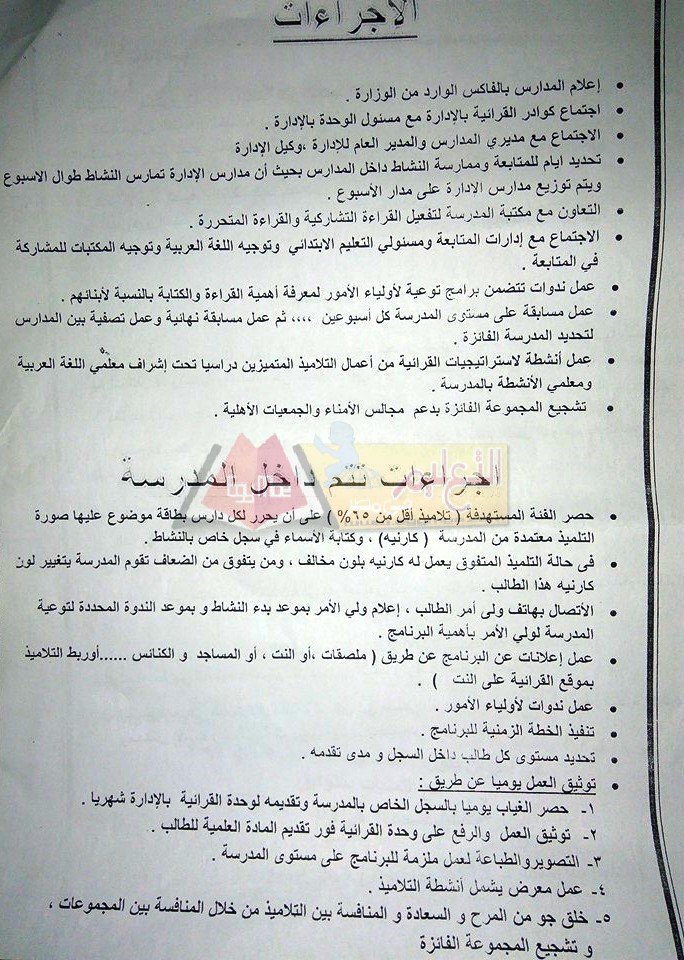 الاجراءات
• إعلام المدارس بالفاكس الوارد من الوزارة .
• اجتماع كوادر القرائية بالإدارة مع مسئول الوحدة بالإدارة .
• الاجتماع مع مديري المدارس والمدير العام للإدارة ،وكيل الإدارة
• تحديد ايام للمتابعة وممارسة النشاط داخل المدارس بحيث أن مدارس الإدارة تمارس النشاط طوال الاسبوع
ويتم توزيع مدارس الادارة على مدار الأسبوع .
• التعاون مع مكتبة المدرسة لتفعيل القراءة التشاركية والقراءة المتحررة .
• الاجتماع مع إدارات المتابعة ومسئولي التعليم الابتدائي وتوجيه اللغة العربية وتوجيه المكتبات للمشاركة
في المتابعة .
• عمل ندوات تتضمن برامج توعية لأولياء الأمور لمعرفة أهمية القراءة والكتابة بالنسبة لأبنائهم .
• عمل مسابقة على مستوى المدرسة كل أسبوعين ,,,, ثم عمل مسابقة نهائية وعمل تصفية بين المدارس
لتحديد المدرسة الفائزة .
• عمل أنشطة لاستراتيجيات القرائية من أعمال التلاميذ المتميزين دراسيا تحت إشراف معلمي اللغة العربية
ومعلمي الأنشطة بالمدرسة .
• تشجيع المجموعة الفائزة بدعم مجالس الأمناء والجمعيات الأهلية .
اجراءات تتم داخل المدرسة
• حصر الفئة المستهدفة ( تلاميذ أقل من ٦٥% ) على أن يحرر لكل دارس بطاقة موضوع عليها صورة
التلميذ معتمدة من المدرسة ( كارنيه) ، وكتابة الأسماء في سجل خاص بالنشاط .
• فى حالة التلميذ المتفوق يعمل له كارنيه بلون مخالف ، ومن يتفوق من الضعاف تقوم المدرسة بتغيير لون
كارنيه هذا الطالب .
• الأتصال بهاتف ولى أمر الطالب ، إعلام ولي الأمر بموعد بدء النشاط و بموعد الندوة المحددة لتوعية
المدرسة لولي الأمر بأهمية البرنامج .
• عمل إعلانات عن البرنامج عن طريق ( ملصقات ،أو النت ، أو المساجد و الكنائس ......أوربط التلاميذ
بموقع القرائية على النت ) .
• عمل ندوات لأولياء الأمور .
• تنفيذ الخطة الزمنية للبرنامج .
• تحديد مستوى كل طالب داخل السجل و مدى تقدمه .
• توثيق العمل يوميا عن طريق :
١- حصر الغياب يوميا بالسجل الخاص بالمدرسة وتقديمه لوحدة القرائية بالإدارة شهريا .
٢- توثيق العمل والرفع على وحدة القرائية فور تقديم المادة العلمية للطالب .
٣- التصويروالطباعة لعمل ملزمة للبرنامج على مستوى المدرسة .
٤- عمل معرض يشمل أنشطة التلاميذ .
٥- خلق جو من المرح و السعادة و المنافسة بين التلاميذ من خلال المنافسة بين المجموعات ،
و تشجيع المجموعة الفائزة